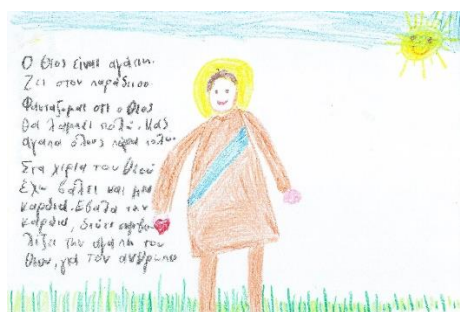 Ο Θεός είναι αγάπη.
Ζει στον παράδεισο
Φαντάζομαι ότι ο Θεός
θα λάμπει πολύ. Μας
αγαπά όλους πάρα πολύ.
Στα χέρια του Θεού
έχω βάλει και μια
καρδιά. Έβαλα την
καρδιά, διότι συμβο
λίζει την αγάπη του
Θεού, για τον άνθρωπο